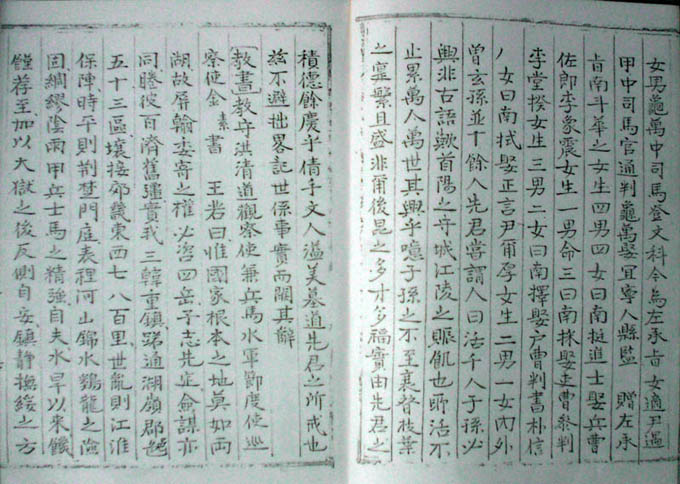 女男龜萬中司馬登文科今爲左承旨女適尹遇
甲中司馬官通判龜萬娶宜寧人縣監 贈左承
旨南斗華之女生四男四女曰南挺進士娶兵曹
佐郎李象震女生一男命三曰南採娶吏曹參判
李堂揆女生三男二女曰南擇娶戶曹判書朴信
女曰南拭娶正言尹甫厚女生二男一女內外
曾玄孫並十餘人先君嘗謂人曰活千人子孫必
興非古語歟首陽之守城江陵之賑飢也所活不
止累萬人萬世其興乎噫子孫之不至衰替枝葉
之寔繁且盛非爾後昆之多才多福實由先君之
積德餘慶乎倩手文人溢美墓道先君之所戒也
玆不避拙畧記世係事實而闕其辭
教書 教守洪淸道觀察使兼兵馬水軍節度使巡
察使金 素 書 王若曰惟國家根本之地莫如兩
湖故屏翰委寄之權必咨四岳予志先定僉謀亦
同睠彼百濟舊疆實我三韓重鎭路通湖嶺郡
五十三區壤接郊畿東西七八百里世亂則江淮
保障時平則荊楚門庭表裡河山錦水鷄龍之險
固綢繆陰雨甲兵士馬之精強自夫水旱以來饑
饉荐至加以大獄之後反側自安鎭靜撫綏之方